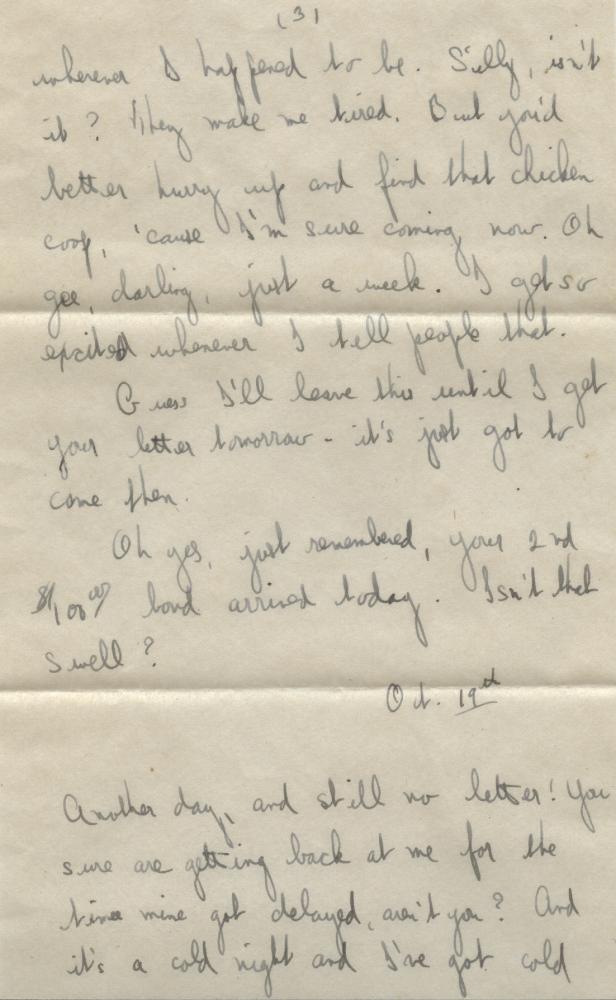 (3)
wherever I happened to be. Silly, isn't
it? They make me tired. But you'd
better hurry up and find that chicken
coop, 'cause I'm sure coming now. Oh
gee, darling, just a week. I get so
excited whenever I tell people that.
Guess I'll leave this until I get
your letter tomorrow - it's just got to
come then.
Oh yes, just remembered, your 2nd
$100.00 bond arrived today. Isn't that
swell?
Oct. 19th
Another day, and still no letter! You
sure are getting back at me for the
time mine got delayed, aren't you? And
it's a cold night and I've got cold